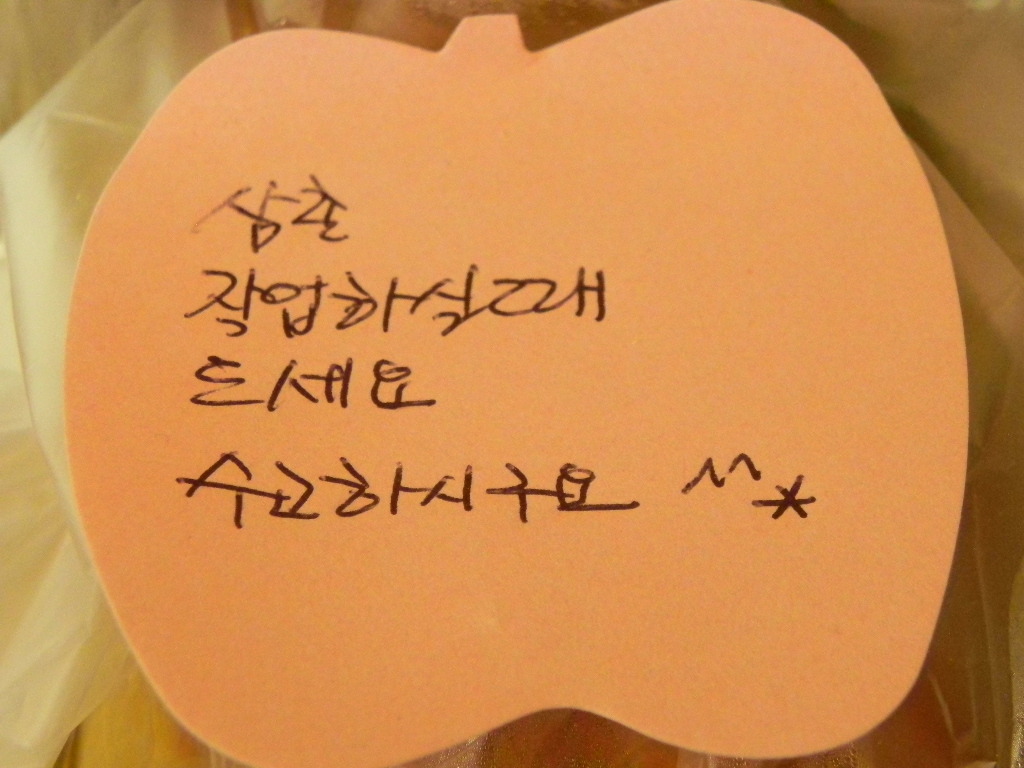 삼촌
작업하실때
드세요
수고하시구요 ^^*